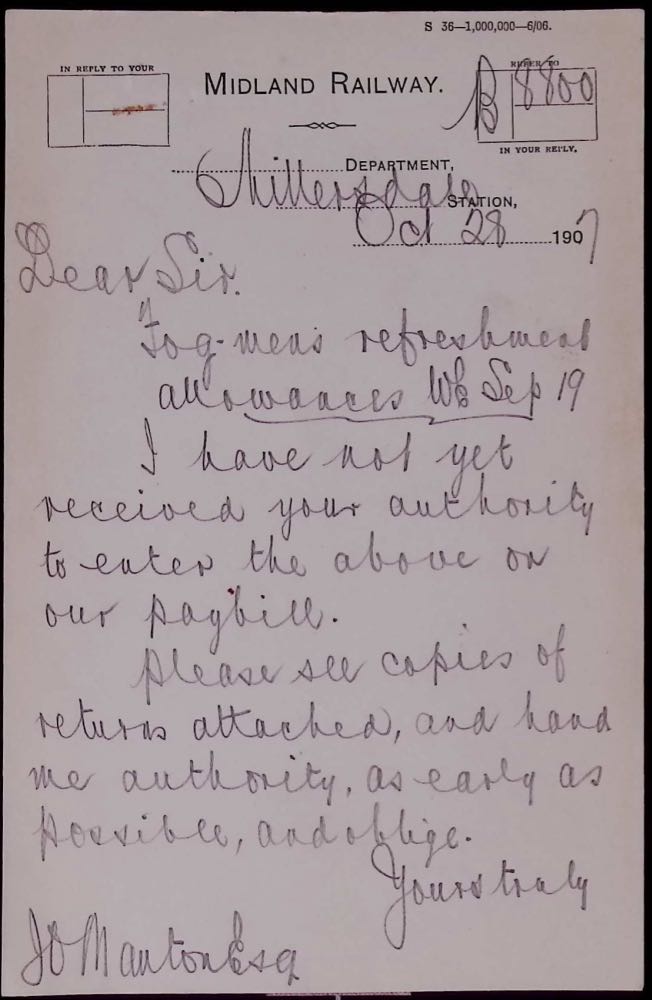 S 36—1,000,000—6/06.
IN REPLY TO YOUR
REFER TO
MIDLAND RAILWAY.
B 8800
IN YOUR REPLY.
DEPARTMENT,
Millersdale STATION,
Oct 28 1907
Dear Sir.
Fog-mens refreshment
allowances We Sep 19
I have not yet
received your authority
to enter the above on
our paybill.
Please see copies of
returns attached, and hand
me authority, as early as
possible, and oblige.
Yours truly
J O Manton Esq